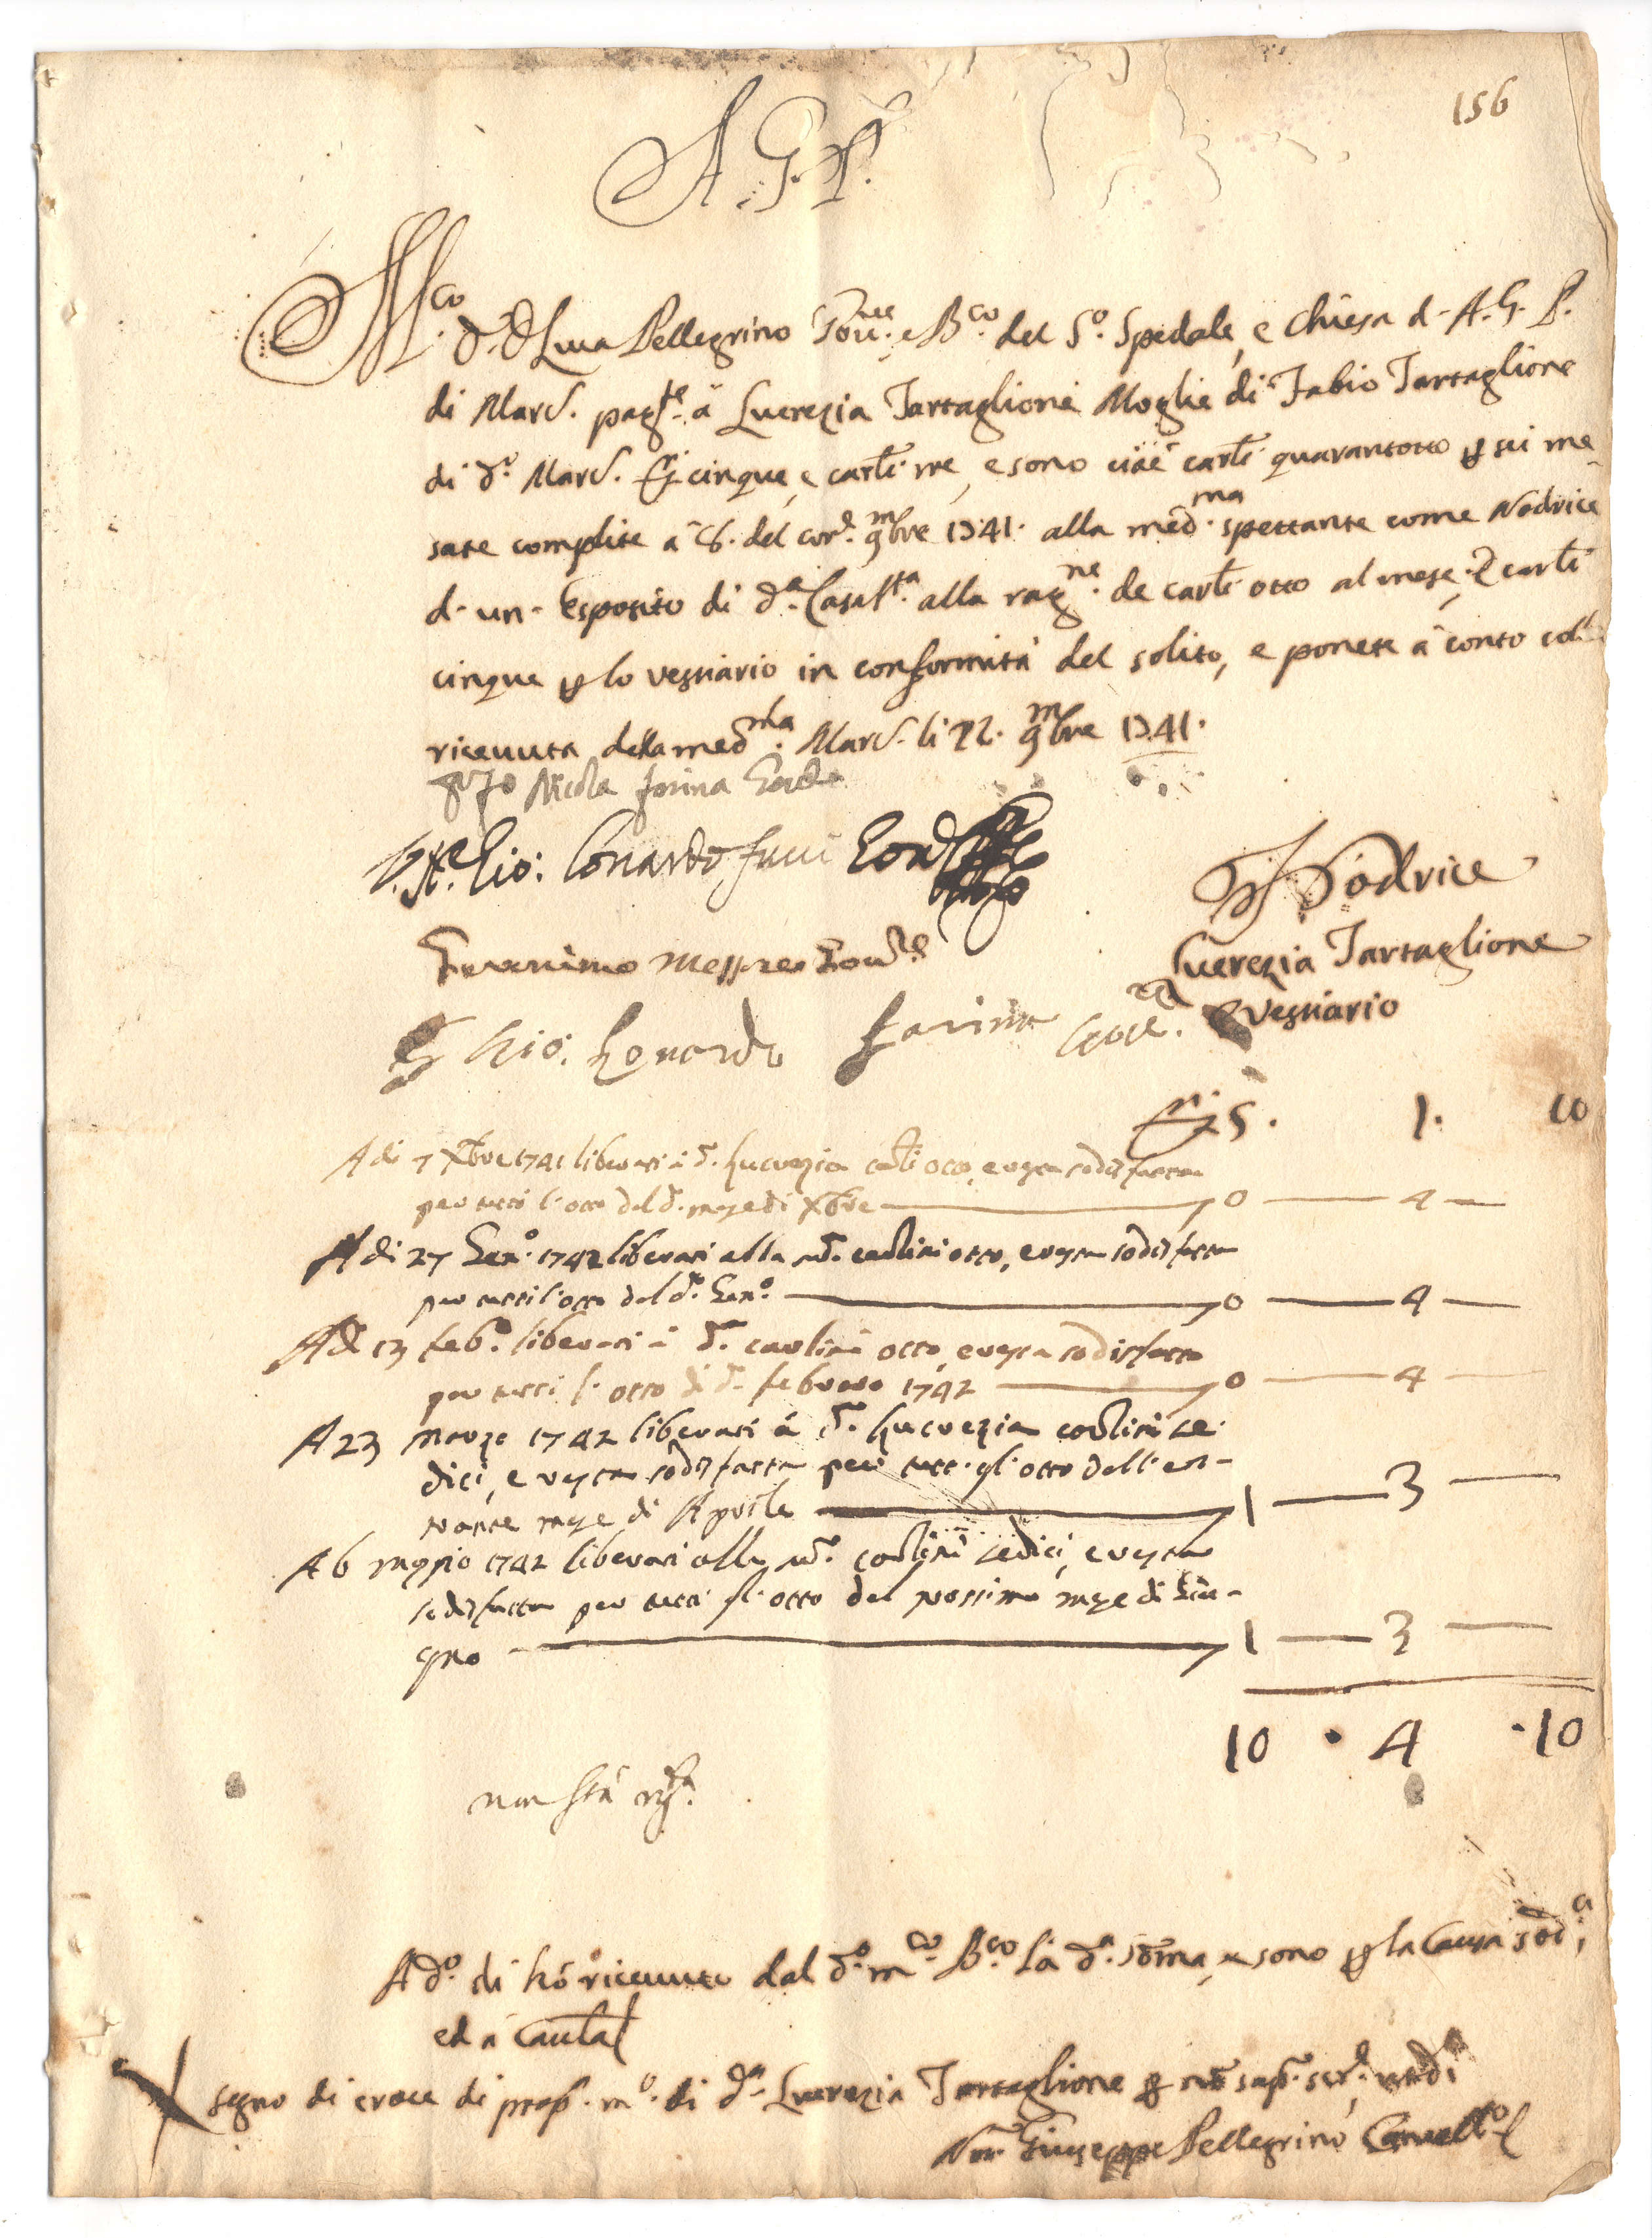 156
A. G. P.
M.co D. D. Luca Pellegrino Gov.re e B.co del S.o Spedale, e Chiesa d. A. G. P.
di Marc. pag.te a Lucrezia Tartaglione Moglie di Fabio Tartaglione
di d.o Marc. cinque, e carl. tre, e sono cioè carl. quarantotto p sei me
sate complite a 8. del cor.e 9mbre 1741. alla med.ma spettante come Nodrice
d. un. Esposito di d.a Casa S.ta alla rag.ne de carl. otto al mese, E carl.
cinque p lo vestiario in conformità del solito, e ponete a conto coll
ricevuta della med.ma Marc. li 22. 9mbre 1741.
Io Nicola farina
Gio: Lonardo fucci
Geronimo Messore Gov.re
Gio: Lonardo farina
P Nodrice
Lucrezia Tartaglione
E Vestiario
5. 1. 10
A di 7 Xbre 1741 liberati a d. Lucrezia carl. otto, e resta sodisfatta
per tutti l'otto del d. mese di Xbre 0 4
A di 27 Gen.o 1742 liberati alla m. carlini otto, e resta sodisfatta
per tutti l'otto del d.o Gen.o 0 4
A di 13 feb.o liberati a d. carlini otto, e resta sodisfatta
per tutti l'otto di d. febraro 1742 0 4
A 23 Marzo 1742 liberati a d. Lucrezia carlini se
dici, e resta sodisfatta per tutt. gl'otto dell'en-
trante mese di Aprile 1 3
A 6 maggio 1742 liberati alla m. carlini sedici, e resta
sodisfatta per tutti gl'otto del prossimo mese di Giu-
gno 1 3
10 . 4 . 10
non stà
A d.o di hò ricevuto dal d.o m.co B.co la d.a soma, e sono p la causa sod.a,
ed a cautela
segno di croce di prop. m.o di d.a Lucrezia Tartaglione p nò sap. scr.e
Giuseppe Pellegrino Cancell.o